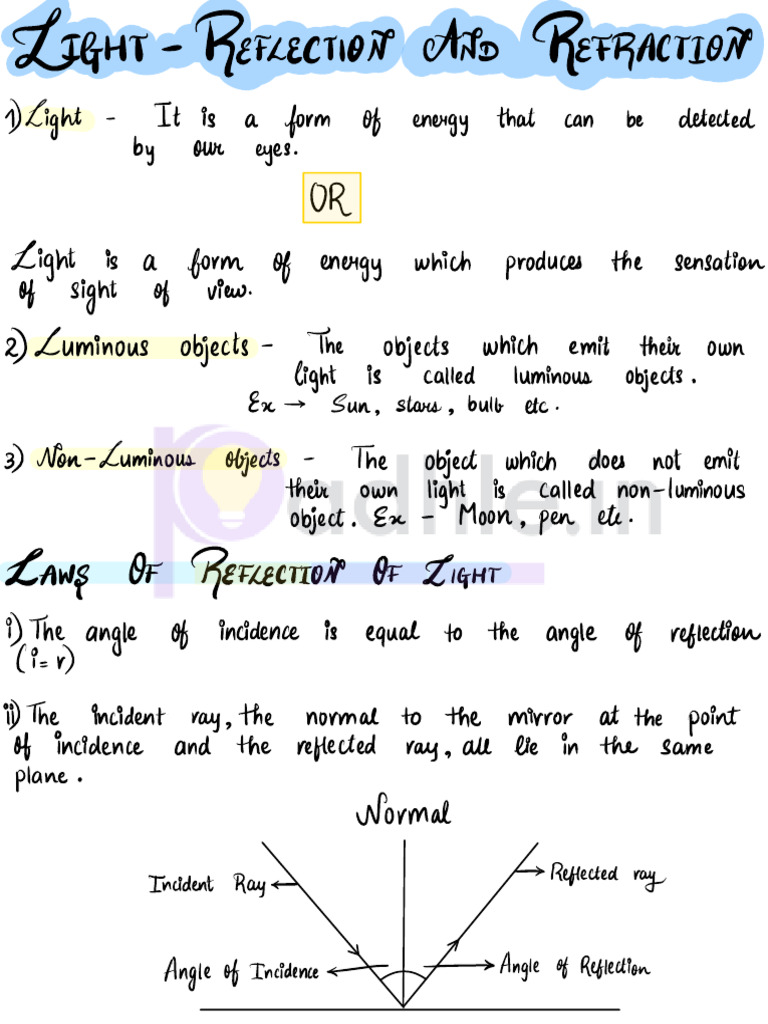 LIGHT - REFLECTION AND REFRACTION
1) Light - It is a form of energy that can be detected
by our eyes.
OR
Light is a form of energy which produces the sensation
of sight of view.
2) Luminous objects - The objects which emit their own
light is called luminous objects.
Ex → Sun, stars, bulb etc.
3) Non-Luminous objects - The object which does not emit
their own light is called non-luminous
object. Ex - Moon, pen etc.
padhle.in
LAWS OF REFLECTION OF LIGHT
i) The angle of incidence is equal to the angle of reflection
(i = r)
ii) The incident ray, the normal to the mirror at the point
of incidence and the reflected ray, all lie in the same
plane.
Normal
Incident Ray
Reflected ray
Angle of Incidence
Angle of Reflection